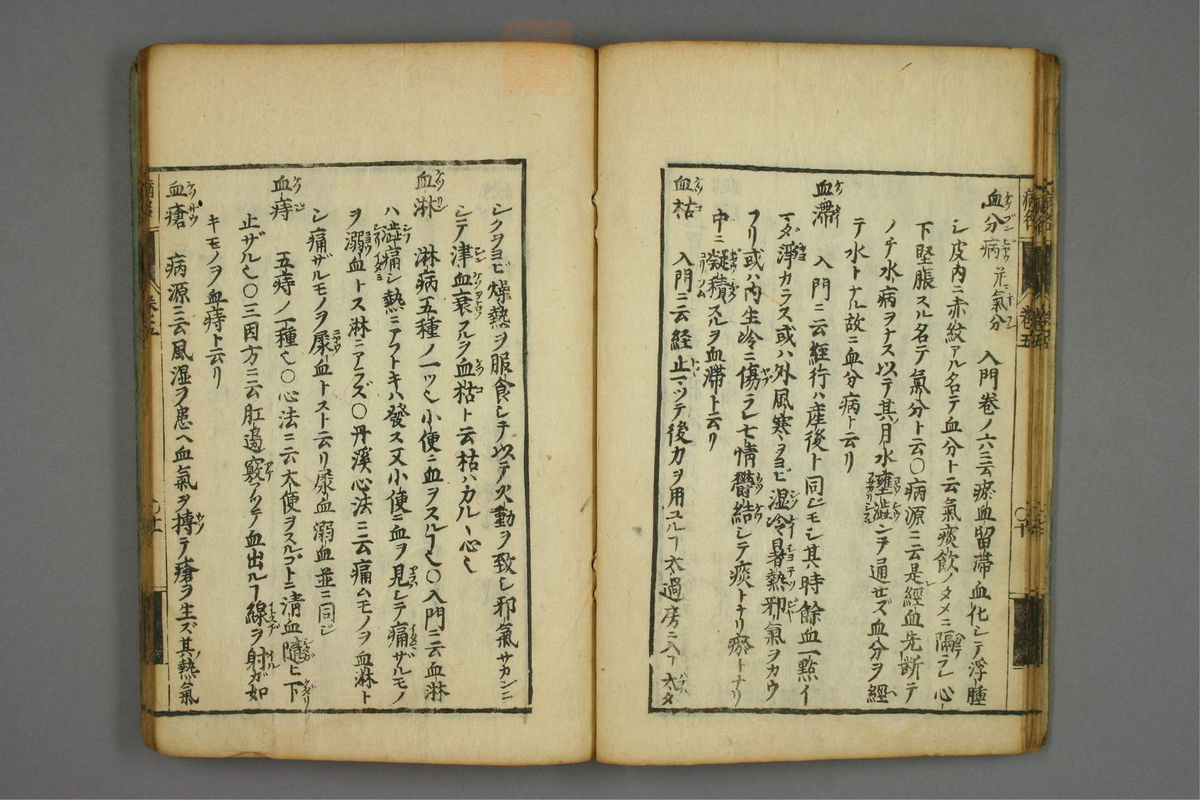 血分病 并ニ氣分 入門卷ノ六ニ云瘀血留滞血化シテ浮腫
シ皮内ニ赤紋アル名テ血分ト云氣痰飲ノタメニ隔ラレ心
下堅脹スル名テ氣分ト云〇病源ニ云是經血先斷テ
ノチ水病ヲナス以テ其月水壅澁シテ通セズ血分ヲ經
テ水トナル故ニ血分病ト云リ
血滯 入門ニ云經行ハ産後ト同ジモシ其時餘血一點イ
マダ淨カラス或ハ外風寒ヲヨビ湿冷暑熱邪氣ヲカウ
フリ或ハ内生冷ニ傷ラレ七情鬱結シテ痰トナリ瘀トナリ
中ニ凝積スルヲ血滞ト云リ
血枯 入門ニ云経止マツテ後力ヲ用ユルヿ太過房ニ入ヿ太タ
シクヲヨビ燥熱ヲ服食シテ以テ火動ヲ致シ邪氣サカンニ
シテ津血衰スルヲ血枯ト云枯ハカルヽ心也
血淋 淋病五種ノ一ツ也小便ニ血ヲスルヿ也〇入門ニ云血淋
ハ澁痛シ熱ニアフトキハ發ス又小便ニ血ヲ見シテ痛ザルモノ
ヲ溺血トス淋ニアラズ〇丹溪心法ニ云痛ムモノヲ血淋ト
シ痛ザルモノヲ尿血トスト云リ尿血溺血並ニ同ジ
血痔 五痔ノ一種也〇心法ニ云大便ヲスルゴトニ清血隨ヒ下
止ザル也〇三因方ニ云肛邊竅アイテ血出ルヿ線ヲ射ガ如
キモノヲ血痔ト云リ
血瘡 病源ニ云風湿ヲ患ヘ血氣ヲ搏テ瘡ヲ生ズ其熱氣